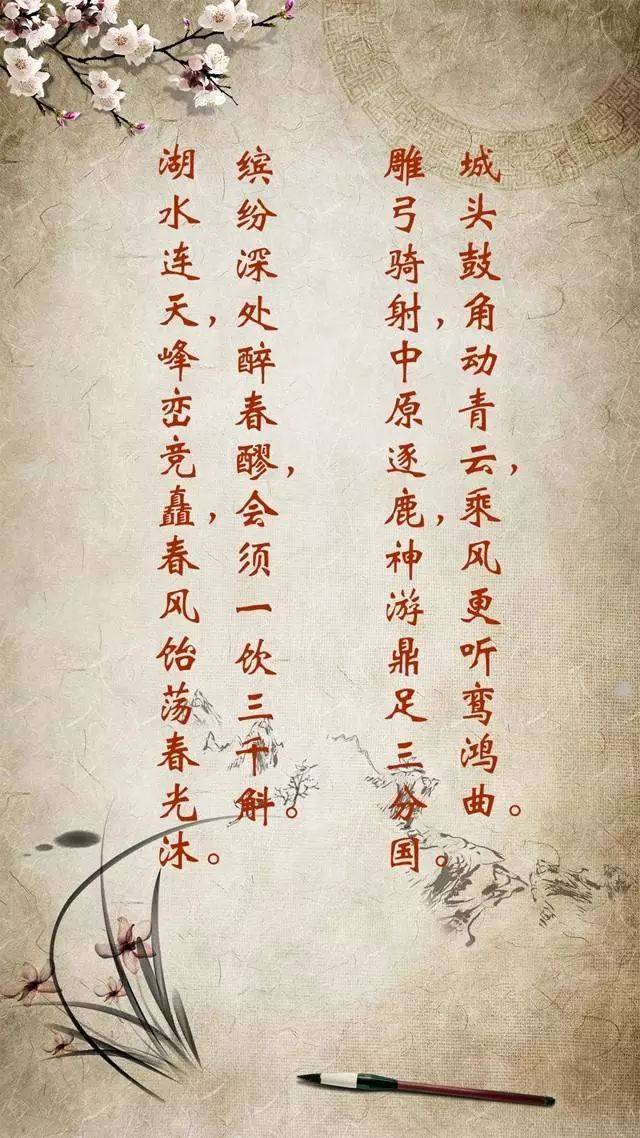 城头鼓角动青云，乘风更听鸾鸿曲。
雕弓骑射，中原逐鹿，神游鼎足三分国。
缤纷深处醉春醪，会须一饮三千斛。
湖水连天，峰峦竞矗，春风饴荡春光沐。